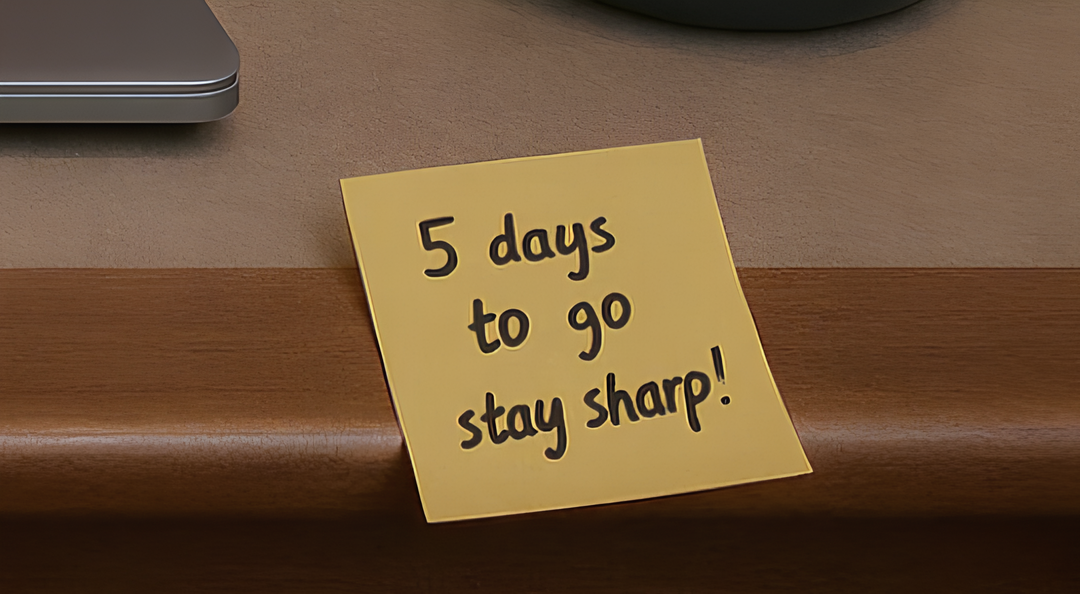 5 days
to go
stay sharp!